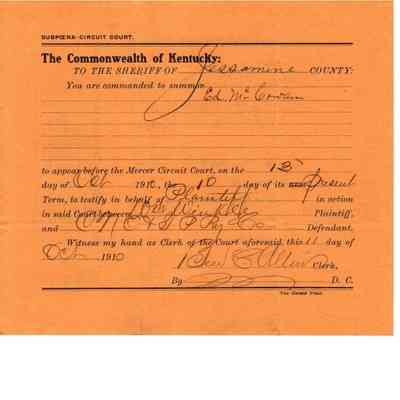 SUBPOENA-CIRCUIT COURT.
The Commonwealth of Kentucky:
TO THE SHERIFF OF Jessamine COUNTY:
You are commanded to summon
Ed McCowan
to appear before the Mercer Circuit Court, on the 15
day of Oct 1910, the 10 day of its next present
Term, to testify in behalf of Plaintiff in action
in said Court between Plaintiff,
and Defendant.
Witness my hand as Clerk of the Court aforesaid, this 11 day of
Oct 1910 Ben C Allin Clerk,
By D. C.